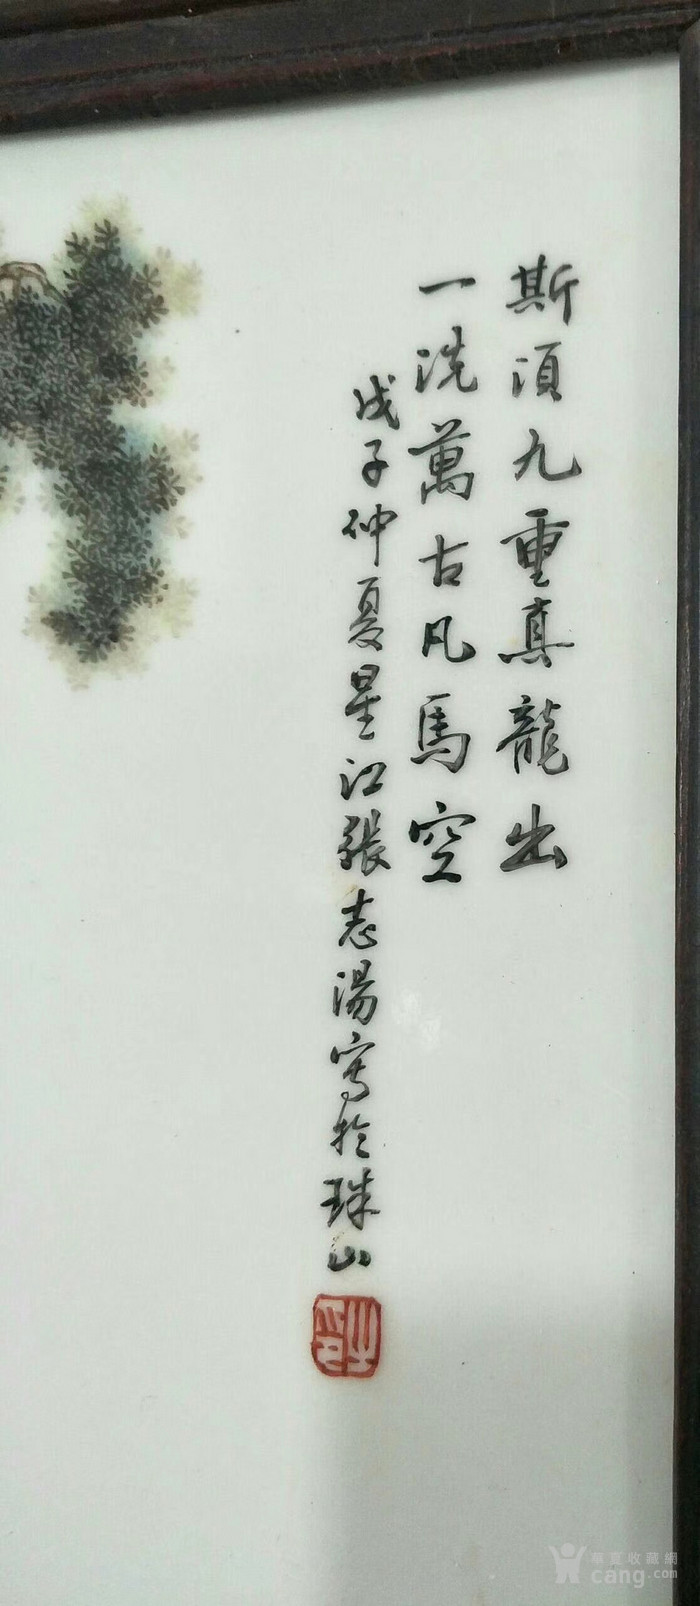 斯湏九重真龍出
一洗萬古凡馬空
戊子仲夏星江張志湯寫於珠山
華夏收藏網
cang.com